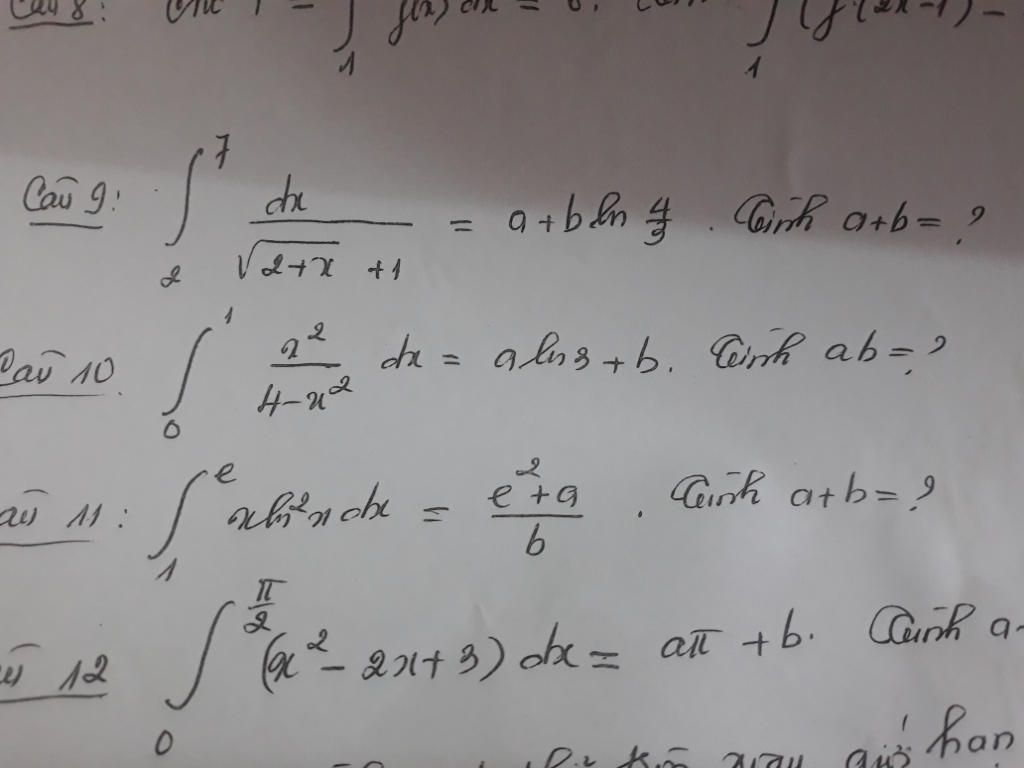 Câu 8: Cho I = ∫₁ f(x) dx = 6. ∫₁ (f(2x-1) -
Câu 9: ∫₂⁷ dx / (√(2+x) + 1) = a + b ln 4/3. Tính a+b = ?
Câu 10. ∫₀¹ x² / (4-x²) dx = a ln3 + b. Tính ab = ?
Câu 11: ∫₁ᵉ x ln²x dx = (e²+a) / b. Tính a+b = ?
12 ∫₀^(π/2) (x² - 2x + 3) dx = aπ + b. Tính a-